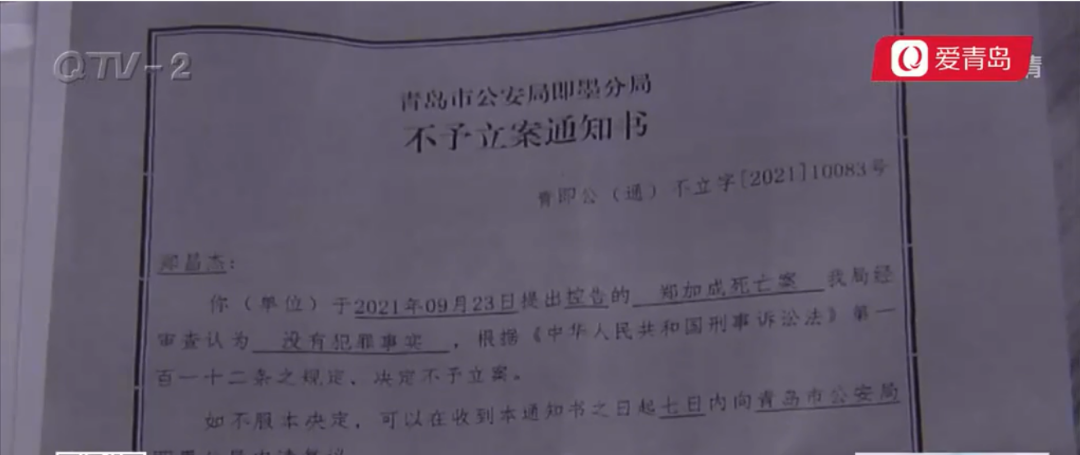 QTV-2
爱青岛
青岛市公安局即墨分局
不予立案通知书
青即公（通）不立字[2021]10083号
郑昌杰：
你（单位）于2021年09月23日提出控告的 郑加成死亡案 我局经
审查认为 没有犯罪事实 ，根据《中华人民共和国刑事诉讼法》第一
百一十二条之规定，决定不予立案。
如不服本决定，可以在收到本通知书之日起七日内向青岛市公安局